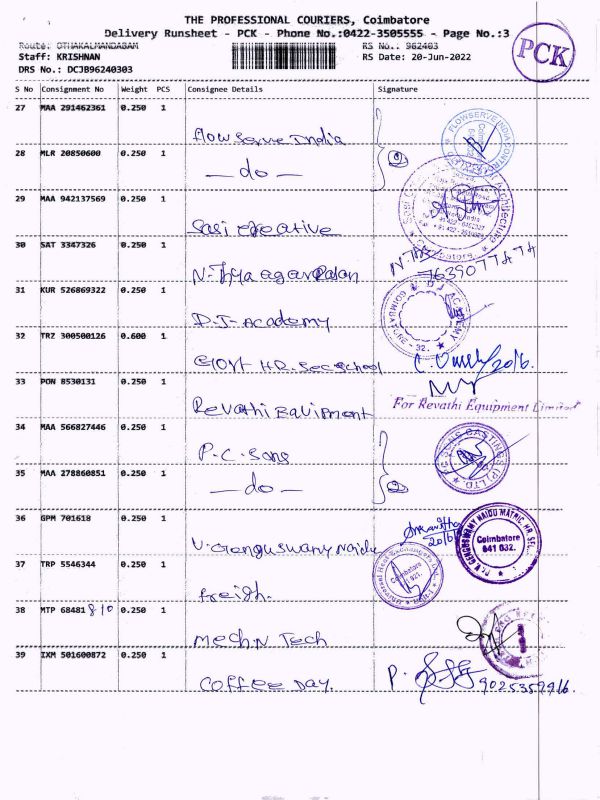 THE PROFESSIONAL COURIERS, Coimbatore
Delivery Runsheet - PCK - Phone No.:0422-3505555 - Page No.:3
PCK
Route: OTHAKALMANDAGAM RS No.: 962403
Staff: KRISHNAN RS Date: 20-Jun-2022
DRS No.: DCJB96240303
S No Consignment No Weight PCS Consignee Details Signature
27 MAA 291462361 0.250 1
Flow Serve India
28 MLR 20850600 0.250 1
— do — 2
29 MAA 942137569 0.250 1
Sasi creative
30 SAT 3347326 0.250 1
7639077474
31 KUR 526869322 0.250 1
D.J-Academy
D J ACADEMY
COIMBATORE - 32.
32 TRZ 300500126 0.600 1
Govt HR. Sec School
33 PON 8530131 0.250 1
Revathi Equipment For Revathi Equipment Limited
34 MAA 566827446 0.250 1
P.C. Sons
35 MAA 278860851 0.250 1
— do — 2
36 GPM 701618 0.250 1
20/6
Coimbatore
641 032.
37 TRP 5546344 0.250 1
Coimbatore
38 MTP 68481810 0.250 1
Mech.N Tech
39 IXM 501600872 0.250 1
Coffee Day. 9025359916.